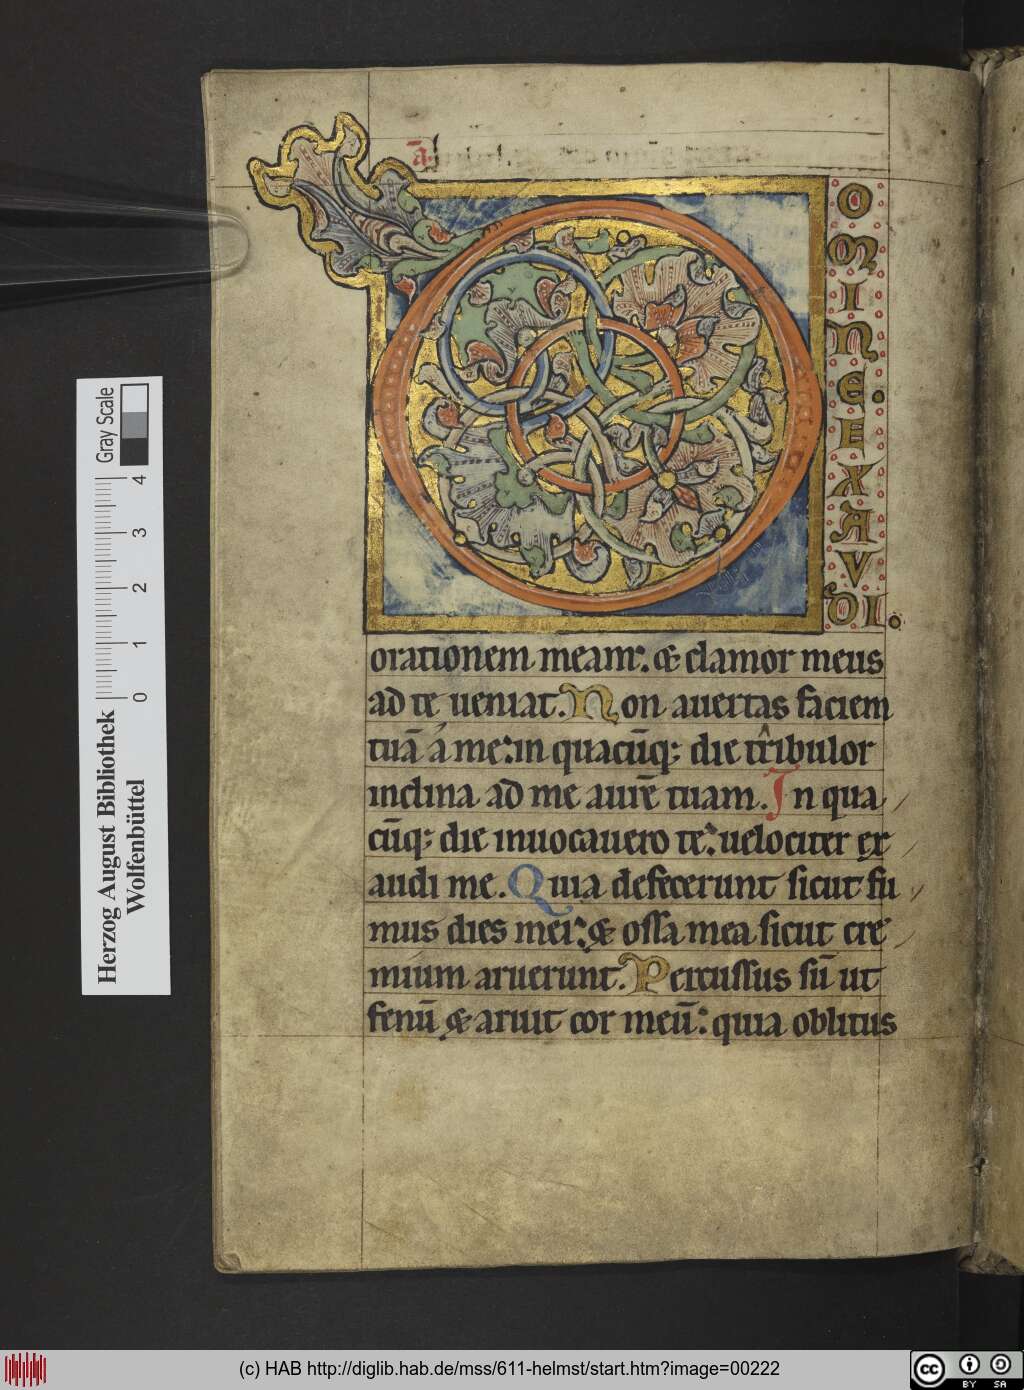 D
OMINE.EXAVDI.
orationem meam: & clamor meus
ad te ueniat. Non auertas faciem
tuā á me: in quacūq; die tribulor
inclina ad me aurē tuam. In qua
cūq; die inuocauero te: uelociter ex
audi me. Quia defecerunt sicut fu
mus dies mei: & ossa mea sicut cre
mium aruerunt. Percussus sū ut
fenū & aruit cor meū: quia oblitus
Herzog August Bibliothek
Wolfenbüttel
0 1 2 3 4
Gray Scale
(c) HAB http://diglib.hab.de/mss/611-helmst/start.htm?image=00222
cc BY SA